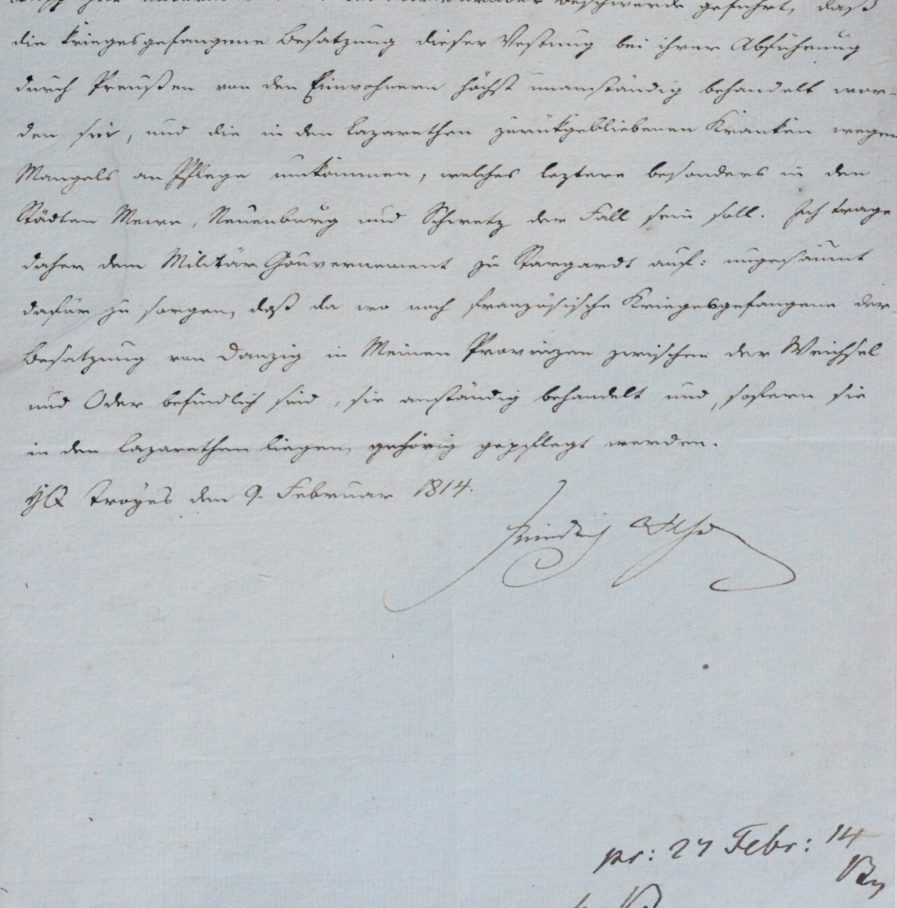 Beschwerde geführt, daß
die kriegesgefangene Besatzung dieser Vestung bei ihrer Abführung
durch Preußen von den Einwohnern höchst unanständig behandelt wor-
den sei, und die in den Lazarethen zurükgebliebenen Kranken wegen
Mangels an Pflege umkommen, welches leztere besonders in den
Städten Mewe, Neuenburg und Schwetz der Fall sein soll. Ich trage
daher dem Militär Gouvernement zu Stargardt auf: ungesäumt
dafür zu sorgen, daß da wo noch französische Kriegesgefangene der
Besatzung von Danzig in Meinen Provinzen zwischen der Weichsel
und Oder befindlich sind, sie anständig behandelt und, sofern sie
in den Lazarethen liegen, gehörig gepflegt werden.
HQ Troyes den 9. Februar 1814.
Friedrich Wilh
pr: 27 Febr: 14